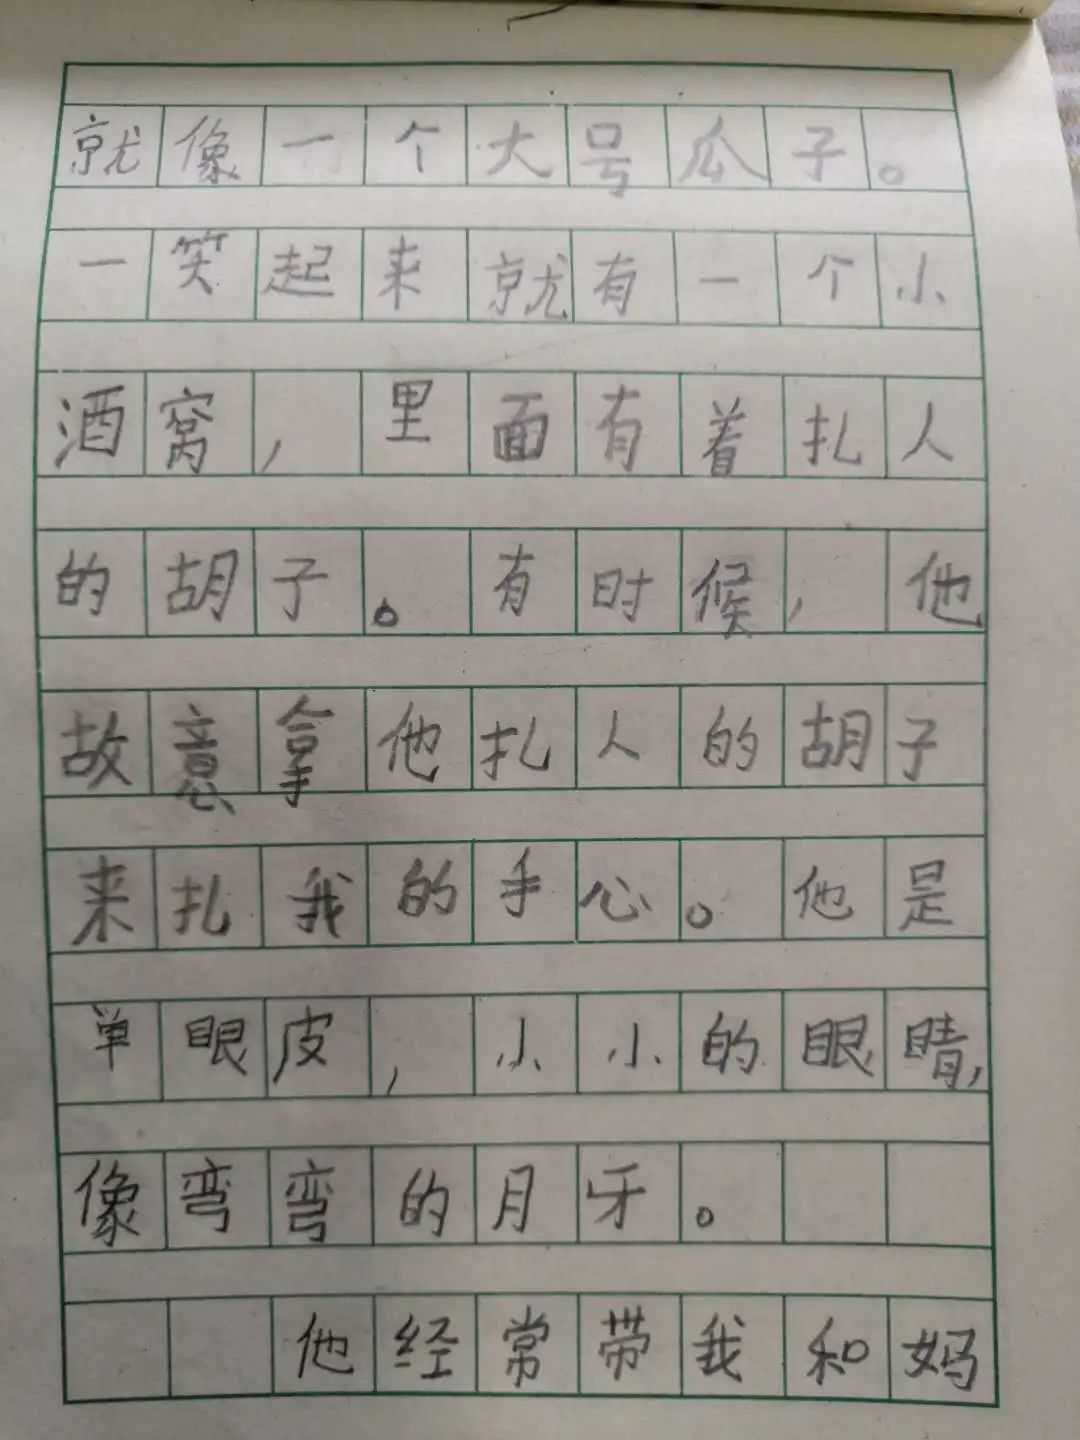 就像一个大号瓜子。
一笑起来就有一个小
酒窝，里面有着扎人
的胡子。有时候，他
故意拿他扎人的胡子
来扎我的手心。他是
单眼皮，小小的眼睛，
像弯弯的月牙。
他经常带我和妈